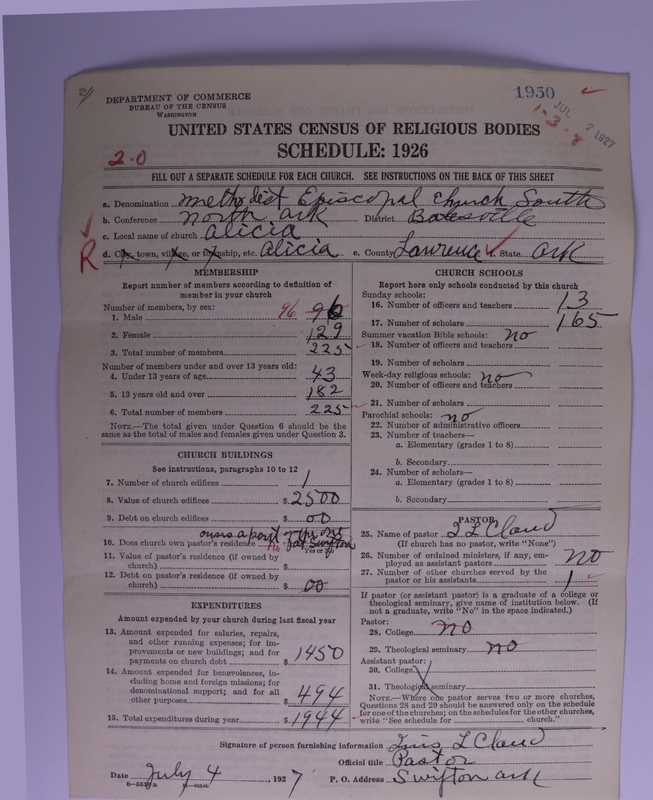 DEPARTMENT OF COMMERCE
BUREAU OF THE CENSUS
WASHINGTON
1950
JUL 7 1927
1-3-8
UNITED STATES CENSUS OF RELIGIOUS BODIES
SCHEDULE: 1926
2-0
FILL OUT A SEPARATE SCHEDULE FOR EACH CHURCH. SEE INSTRUCTIONS ON THE BACK OF THIS SHEET
a. Denomination Methodist Episcopal Church South
b. Conference North Ark District Batesville
c. Local name of church Alicia
R
d. City, town, village, or township, etc. Alicia e. County Lawrence f. State Ark
MEMBERSHIP
Report number of members according to definition of
member in your church
Number of members, by sex:
1. Male 96 96
2. Female 129
3. Total number of members 225
Number of members under and over 13 years old:
4. Under 13 years of age 43
5. 13 years old and over 182
6. Total number of members 225
NOTE.—The total given under Question 6 should be the
same as the total of males and females given under Question 3.
CHURCH BUILDINGS
See instructions, paragraphs 10 to 12
7. Number of church edifices 1
8. Value of church edifices $ 2500
9. Debt on church edifices $ 00
owns a part
10. Does church own pastor's residence? No at Swifton
Yes or No
11. Value of pastor's residence (if owned by
church) $
12. Debt on pastor's residence (if owned by
church) $ 00
EXPENDITURES
Amount expended by your church during last fiscal year
13. Amount expended for salaries, repairs,
and other running expenses; for im-
provements or new buildings; and for
payments on church debt $ 1450
14. Amount expended for benevolences, in-
cluding home and foreign missions; for
denominational support; and for all
other purposes $ 494
15. Total expenditures during year $ 1944
CHURCH SCHOOLS
Report here only schools conducted by this church
Sunday schools:
16. Number of officers and teachers 13
17. Number of scholars 165
Summer vacation Bible schools: no
18. Number of officers and teachers
19. Number of scholars
Week-day religious schools: no
20. Number of officers and teachers
21. Number of scholars
Parochial schools: no
22. Number of administrative officers
23. Number of teachers—
a. Elementary (grades 1 to 8)
b. Secondary
24. Number of scholars—
a. Elementary (grades 1 to 8)
b. Secondary
PASTOR
25. Name of pastor L L Claud
(If church has no pastor, write "None")
26. Number of ordained ministers, if any, em-
ployed as assistant pastors no
27. Number of other churches served by the
pastor or his assistants 1
If pastor (or assistant pastor) is a graduate of a college or
theological seminary, give name of institution below. (If
not a graduate, write "No" in the space indicated.)
Pastor:
28. College no
29. Theological seminary no
Assistant pastor:
30. College
31. Theological seminary
NOTE.—Where one pastor serves two or more churches,
Questions 28 and 29 should be answered only on the schedule
for one of the churches; on the schedules for the other churches,
write "See schedule for church."
Signature of person furnishing information L Claud
Official title Pastor
Date July 4, 1927 P. O. Address Swifton Ark